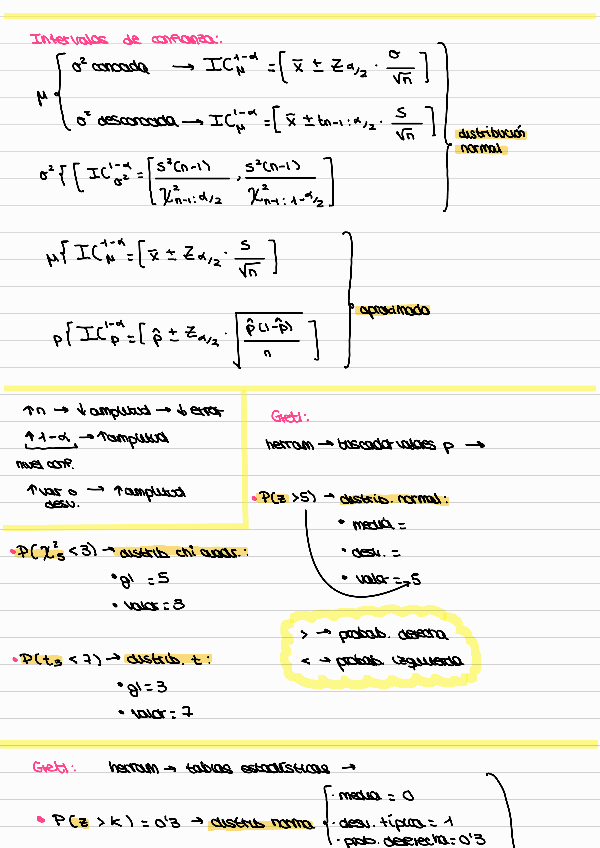 Intervalos de confianza:
μ { σ² conocida → IC_μ^{1-α} = [ x̄ ± Z_{α/2} · σ/√n ]
σ² desconocida → IC_μ^{1-α} = [ x̄ ± t_{n-1; α/2} · S/√n ]
distribución normal
σ² { [ IC_{σ²}^{1-α} = [ S²(n-1)/χ²_{n-1; α/2} , S²(n-1)/χ²_{n-1; 1-α/2} ]
μ { IC_μ^{1-α} = [ x̄ ± Z_{α/2} · S/√n ]
aproximado
p { IC_p^{1-α} = [ p̂ ± Z_{α/2} · √(p̂(1-p̂)/n) ]
↑n → ↓ amplitud → ↓ error
↑ 1-α → ↑ amplitud
nivel conf.
↑ var o → ↑ amplitud
desv.
Gretl:
herram → buscador valores p →
• P(z > 5) → distrib. normal:
• media =
• desv. =
• valor = 5
• P(χ²_5 < 3) → distrib chi cuadr.:
• gl = 5
• valor = 3
> → probab. derecha
< → probab. izquierda
• P(t_3 < 7) → distrib. t:
• gl = 3
• valor = 7
Gretl: herram → tablas estadísticas →
• P(z > k) = 0'3 → distrib norma
· media = 0
· desv. típica = 1
· prob. derecha = 0'3